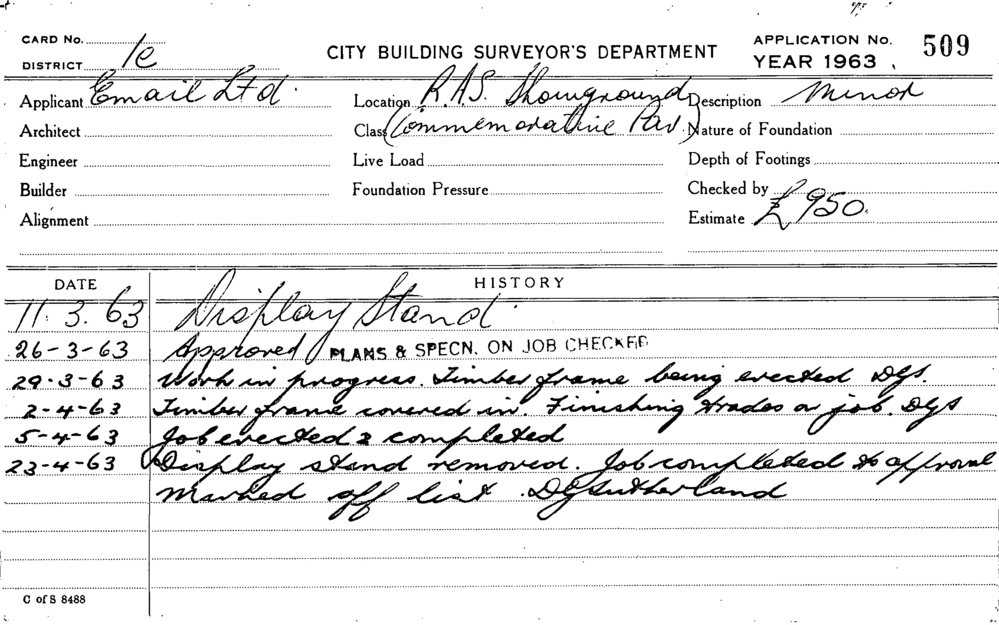 CARD No.
DISTRICT 1c
CITY BUILDING SURVEYOR'S DEPARTMENT
APPLICATION No. 509
YEAR 1963
Applicant Email Ltd. Location R.A.S. Showground Description Minor
Architect Class (Commemorative Pav.) Nature of Foundation
Engineer Live Load Depth of Footings
Builder Foundation Pressure Checked by
Alignment Estimate £950.
DATE HISTORY
11.3.63 Display Stand.
26-3-63 Approved PLANS & SPECN. ON JOB CHECKED
29-3-63 Work in progress. Timber frame being erected DGS.
2-4-63 Timber frame covered in. Finishing trades on job. DGS
5-4-63 Job erected & completed
23-4-63 Display stand removed. Job completed to approval
Marked off list. DGSutherland
C of S 8488